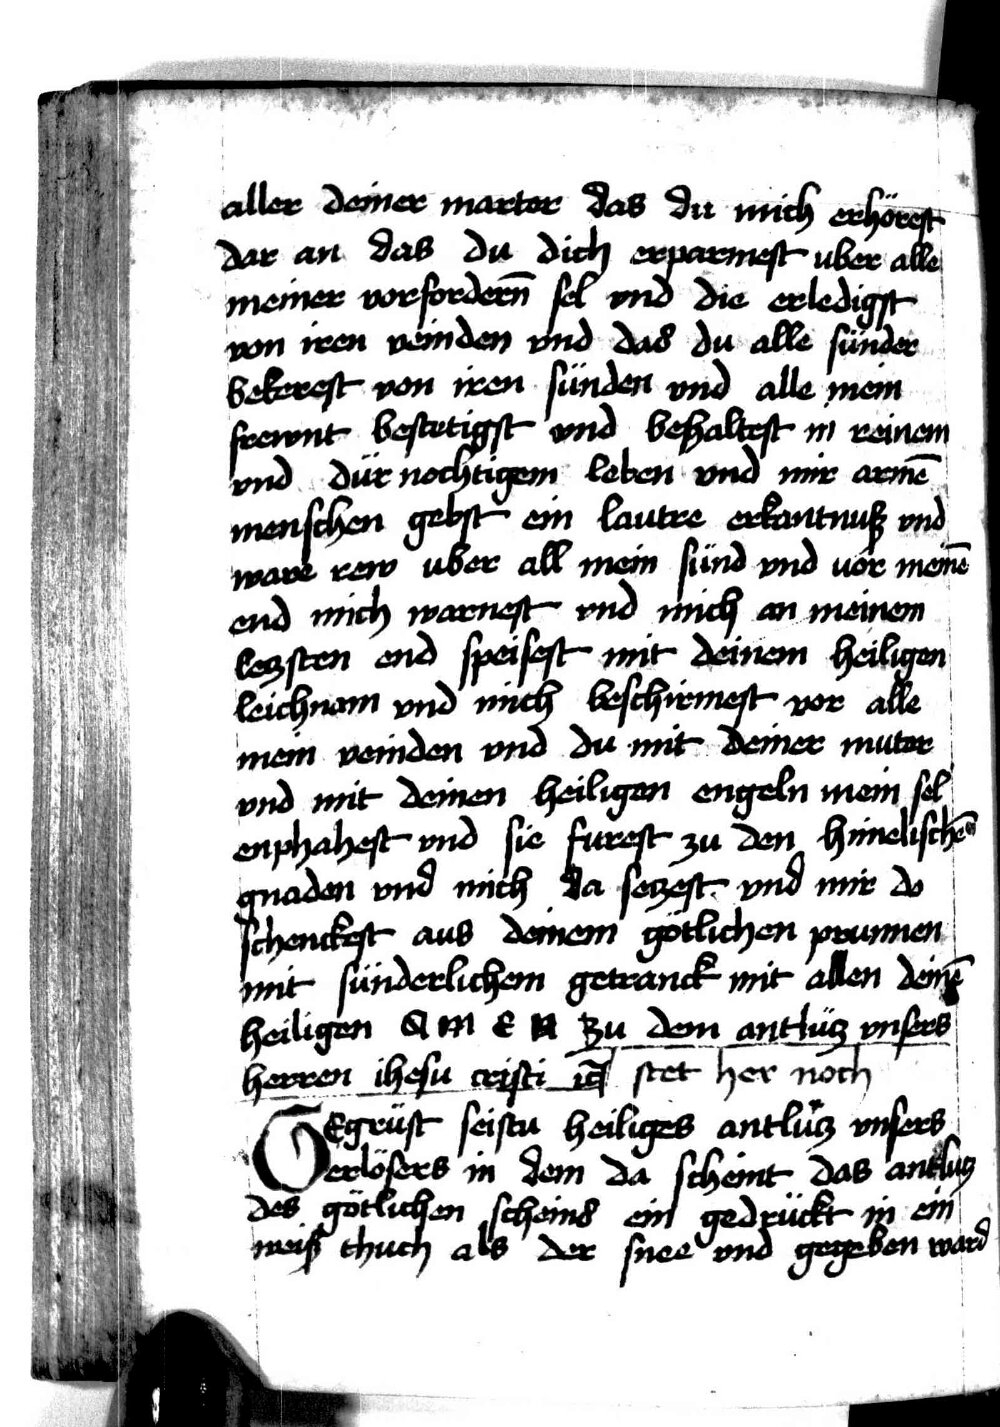 aller deiner marter das du mich erhörest
dar an das du dich erparmest uber alle
meiner vorfordern̄ sel vnd die erledigst
von iren veinden vnd das du alle sünder
bekerest von iren sünden vnd alle mein
frewnt bestetigst vnd behaltest in reinem
vnd dürnochtigem leben vnd mir armē
menschen gebst ein lautre erkantnuß vnd
ware rew uber all mein sünd vnd vor meinē
end mich warnest vnd mich an meinem
letzsten end speisest mit deinem heiligen
leichnam vnd mich beschirmest vor alle
mein veinden vnd du mit deiner muter
vnd mit deinen heiligen engeln mein sel
enphahest vnd sie furest zu den himelischē
gnaden vnd mich da setzest vnd mir do
schenckest aus deinem götlichen prunnen
mit sünderlichem getranck mit allen deinē
heiligen A M E N Zu dem antlütz vnsers
herren ihesu cristi stet her noch
GEgrüst seistu heiliges antlütz vnsers
erlösers in dem da scheint das antlutz
des götlichen scheins ein gedrückt in ein
weiß thuch als der snee vnd gegeben ward